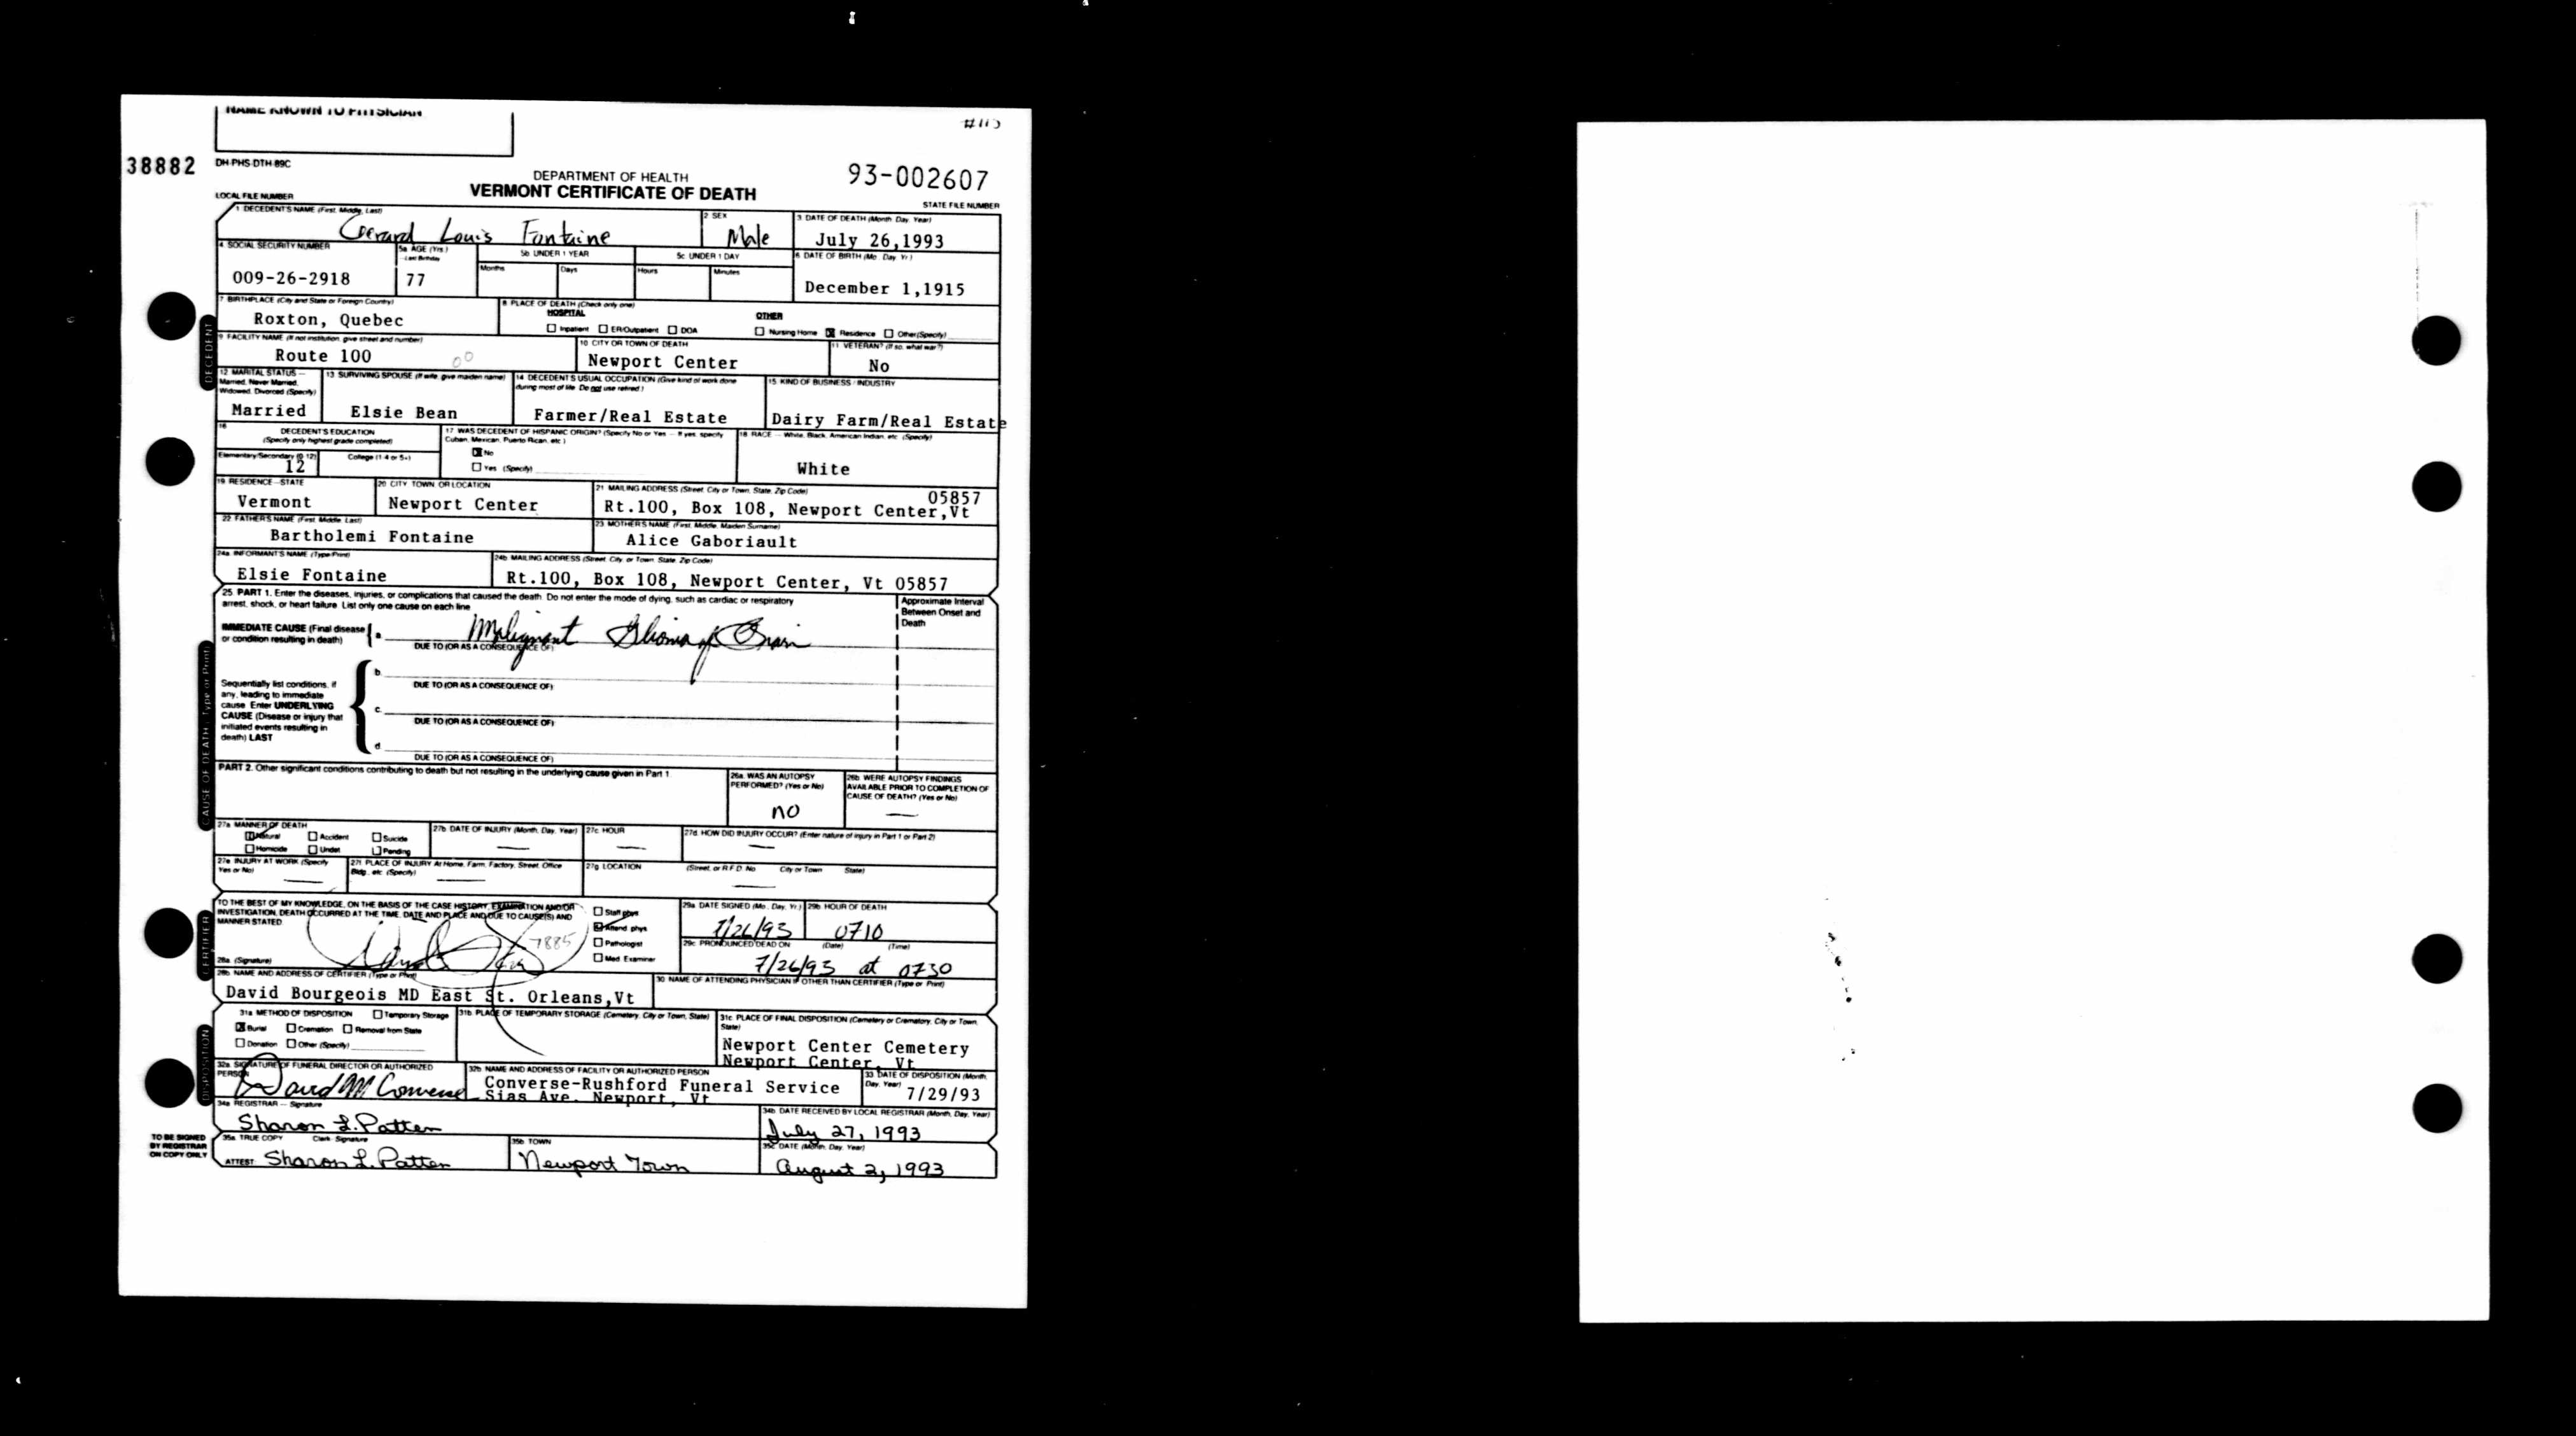 NAME KNOWN TO PHYSICIAN
38882
DH-PHS-DTH-89C
DEPARTMENT OF HEALTH
VERMONT CERTIFICATE OF DEATH
93-002607
LOCAL FILE NUMBER
STATE FILE NUMBER
1 DECEDENT'S NAME (First, Middle, Last)
Gerard Louis Fontaine
2 SEX
Male
3 DATE OF DEATH (Month, Day, Year)
July 26,1993
4 SOCIAL SECURITY NUMBER
009-26-2918
5a AGE (Yrs.) Last Birthday
77
5b UNDER 1 YEAR
Months Days
5c UNDER 1 DAY
Hours Minutes
6 DATE OF BIRTH (Mo., Day, Yr.)
December 1,1915
7 BIRTHPLACE (City and State or Foreign Country)
Roxton, Quebec
8 PLACE OF DEATH (Check only one)
HOSPITAL
Inpatient ER/Outpatient DOA
OTHER
Nursing Home Residence Other (Specify)
9 FACILITY NAME (If not institution, give street and number)
Route 100
10 CITY OR TOWN OF DEATH
Newport Center
11 VETERAN? (If so, what war?)
No
12 MARITAL STATUS — Married, Never Married, Widowed, Divorced (Specify)
Married
13 SURVIVING SPOUSE (If wife, give maiden name)
Elsie Bean
14 DECEDENT'S USUAL OCCUPATION (Give kind of work done during most of life. Do not use retired.)
Farmer/Real Estate
15 KIND OF BUSINESS / INDUSTRY
Dairy Farm/Real Estate
16 DECEDENT'S EDUCATION
(Specify only highest grade completed)
Elementary/Secondary (0-12) College (1-4 or 5+)
12
17 WAS DECEDENT OF HISPANIC ORIGIN? (Specify No or Yes — If yes, specify Cuban, Mexican, Puerto Rican, etc.)
No
Yes (Specify)
18 RACE — White, Black, American Indian, etc. (Specify)
White
19 RESIDENCE—STATE
Vermont
20 CITY TOWN OR LOCATION
Newport Center
21 MAILING ADDRESS (Street, City or Town, State, Zip Code)
05857
Rt.100, Box 108, Newport Center,Vt
22 FATHER'S NAME (First, Middle, Last)
Bartholemi Fontaine
23 MOTHER'S NAME (First, Middle, Maiden Surname)
Alice Gaboriault
24a INFORMANT'S NAME (Type/Print)
Elsie Fontaine
24b MAILING ADDRESS (Street, City, or Town, State, Zip Code)
Rt.100, Box 108, Newport Center, Vt 05857
25. PART 1. Enter the diseases, injuries, or complications that caused the death. Do not enter the mode of dying, such as cardiac or respiratory
arrest, shock, or heart failure. List only one cause on each line
Approximate Interval
Between Onset and
Death
IMMEDIATE CAUSE (Final disease
or condition resulting in death)
a. Malignant Glioma of Brain
DUE TO (OR AS A CONSEQUENCE OF)
b.
DUE TO (OR AS A CONSEQUENCE OF)
Sequentially list conditions, if
any, leading to immediate
cause. Enter UNDERLYING
CAUSE (Disease or injury that
initiated events resulting in
death) LAST
c.
DUE TO (OR AS A CONSEQUENCE OF)
d.
DUE TO (OR AS A CONSEQUENCE OF)
PART 2. Other significant conditions contributing to death but not resulting in the underlying cause given in Part 1
26a. WAS AN AUTOPSY
PERFORMED? (Yes or No)
no
26b. WERE AUTOPSY FINDINGS
AVAILABLE PRIOR TO COMPLETION OF
CAUSE OF DEATH? (Yes or No)
—
27a. MANNER OF DEATH
Natural Accident Suicide
Homicide Undet Pending
27b. DATE OF INJURY (Month, Day, Year)
—
27c. HOUR
—
27d. HOW DID INJURY OCCUR? (Enter nature of injury in Part 1 or Part 2)
—
27e INJURY AT WORK (Specify
Yes or No)
—
27f. PLACE OF INJURY At Home, Farm, Factory, Street, Office
Bldg., etc. (Specify)
—
27g LOCATION (Street, or R.F.D. No. City or Town State)
—
TO THE BEST OF MY KNOWLEDGE, ON THE BASIS OF THE CASE HISTORY, EXAMINATION AND/OR
INVESTIGATION, DEATH OCCURRED AT THE TIME, DATE AND PLACE AND DUE TO CAUSE(S) AND
MANNER STATED
7885
28a (Signature)
Staff phys
Attend phys
Pathologist
Med Examiner
29a. DATE SIGNED (Mo., Day, Yr.)
7/26/93
29b. HOUR OF DEATH
0710
29c. PRONOUNCED DEAD ON (Date) (Time)
7/26/93 at 0730
28b. NAME AND ADDRESS OF CERTIFIER (Type or Print)
David Bourgeois MD East St. Orleans,Vt
30 NAME OF ATTENDING PHYSICIAN IF OTHER THAN CERTIFIER (Type or Print)
31a METHOD OF DISPOSITION Temporary Storage
Burial Cremation Removal from State
Donation Other (Specify)
31b. PLACE OF TEMPORARY STORAGE (Cemetery, City or Town, State)
31c PLACE OF FINAL DISPOSITION (Cemetery or Crematory, City or Town,
State)
Newport Center Cemetery
Newport Center, Vt
32a. SIGNATURE OF FUNERAL DIRECTOR OR AUTHORIZED
PERSON
David M Converse
32b NAME AND ADDRESS OF FACILITY OR AUTHORIZED PERSON
Converse-Rushford Funeral Service
Sias Ave. Newport, Vt
33 DATE OF DISPOSITION (Month,
Day, Year)
7/29/93
34a REGISTRAR — Signature
Sharon L. Patten
34b DATE RECEIVED BY LOCAL REGISTRAR (Month, Day, Year)
July 27, 1993
TO BE SIGNED
BY REGISTRAR
ON COPY ONLY
35a TRUE COPY Clerk Signature
ATTEST: Sharon L. Patten
35b TOWN
Newport Town
35c DATE (Month, Day, Year)
August 2, 1993
DECEDENT
CAUSE OF DEATH - Type or Print
CERTIFIER
DISPOSITION